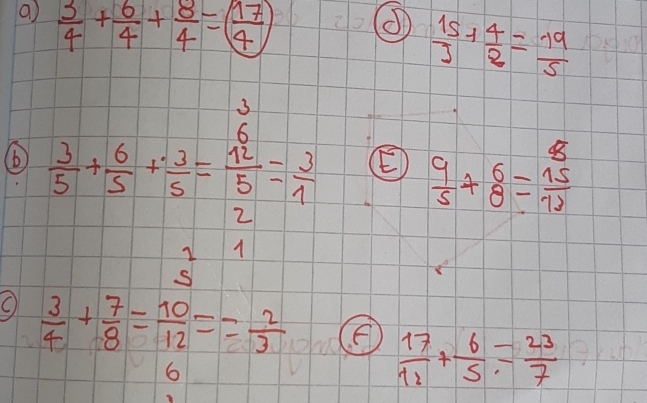 a) 3/4 + 6/4 + 8/4 = 17/4
d) 15/3 + 4/2 = 19/5
3
6
b) 3/5 + 6/5 + 3/5 = 12/5 = 3/1
2
1
E) 9/5 + 6/8 = 15/13
2
5
c) 3/4 + 7/8 = 10/12 = = 2/3
6
F) 17/12 + 6/5 = 23/7